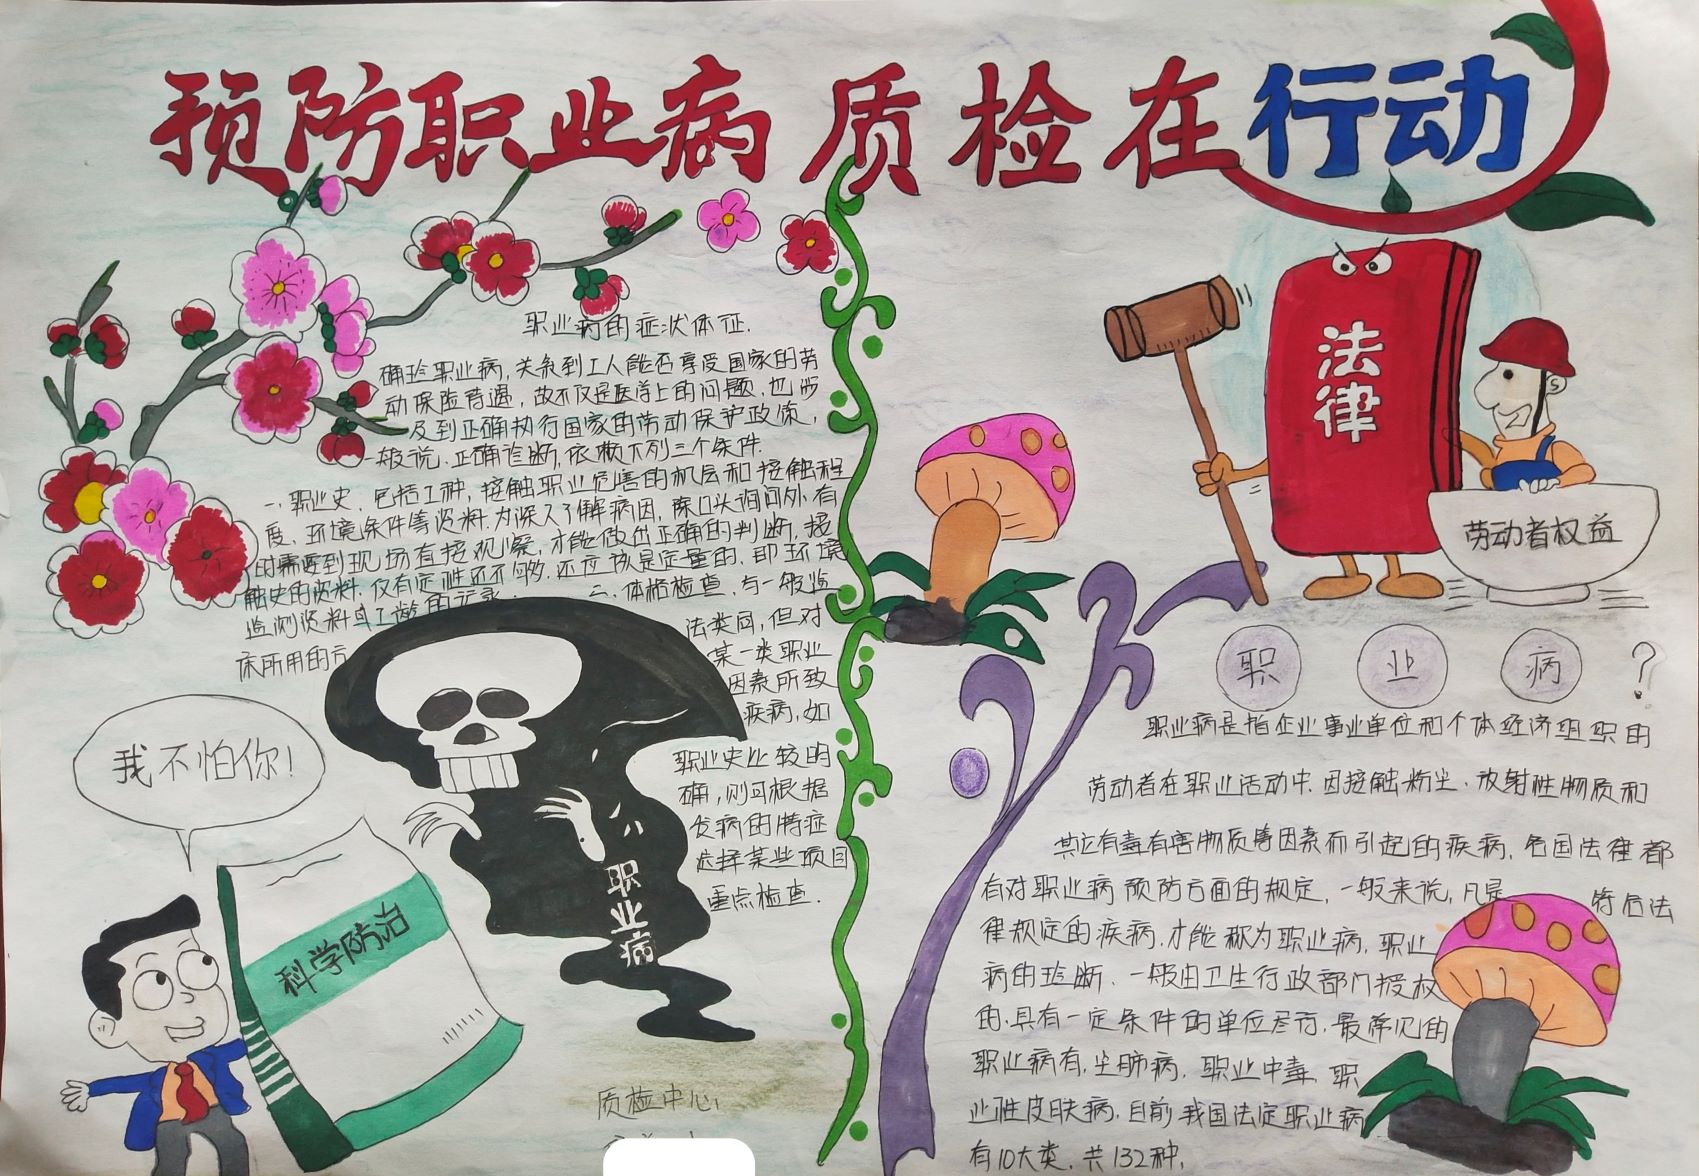 预防职业病 质检在行动
职业病的症状体征.
确诊职业病,关系到工人能否享受国家的劳
动保险待遇,故不仅是医学上的问题,也涉
及到正确执行国家的劳动保护政策,
一般说.正确诊断,依赖下列三个条件.
一.职业史.包括工种,接触职业危害的机会和接触程
度,环境条件等资料.为深入了解病因,除口头询问外,有
时需要到现场直接观察,才能做出正确的判断,接
触史的资料,仅有定性还不够,还应该是定量的,即环境
监测资料与工龄的记录. 二.体格检查,与一般临
床所用的方
法类同,但对
某一类职业
因素所致
疾病,如
职业史比较明
确,则可根据
发病的特症
选择某些项目
重点检查.
我不怕你!
科学防治
职业病
质检中心
法律
劳动者权益
职业病?
职业病是指企业事业单位和个体经济组织的
劳动者在职业活动中.因接触粉尘.放射性物质和
其它有毒有害物质等因素而引起的疾病,各国法律都
有对职业病预防方面的规定,一般来说,凡是 符合法
律规定的疾病.才能称为职业病,职业
病的诊断.一般由卫生行政部门授权
的.具有一定条件的单位进行.最常见的
职业病有,尘肺病,职业中毒,职
业性皮肤病,目前我国法定职业病
有10大类,共132种,